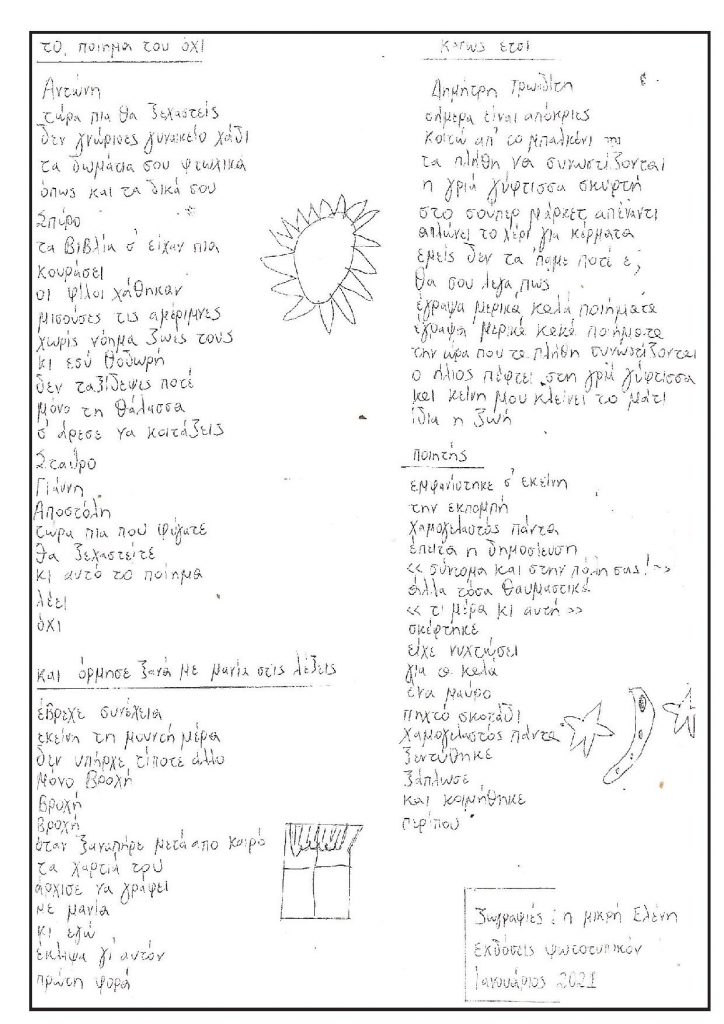 το ποίημα του όχι
Αντώνη
τώρα πια θα ξεχαστείς
δεν γνώρισες γυναικείο χάδι
τα δωμάτια σου φτωχικά
όπως και τα δικά σου
Σπύρο
τα βιβλία σ' είχαν πια
κουράσει
οι φίλοι χάθηκαν
μισούσες τις αμέριμνες
χωρίς νόημα ζωές τους
κι εσύ Θοδωρή
δεν ταξίδεψες ποτέ
μόνο τη θάλασσα
σ' άρεσε να κοιτάζεις
Σταύρο
Γιάννη
Αποστόλη
τώρα πια που φύγατε
θα ξεχαστείτε
κι αυτό το ποίημα
λέει
όχι
και όρμησε ξανά με μανία στις λέξεις
έβρεχε συνέχεια
εκείνη τη μουντή μέρα
δεν υπήρχε τίποτε άλλο
μόνο βροχή
βροχή
βροχή
όταν ξαναπήρε μετά απο καιρό
τα χαρτιά του
άρχισε να γράφει
με μανία
κι εγώ
έκλαψα γι αυτόν
πρώτη φορά
κάπως έτσι
Δημήτρη Τρωαδίτη
σήμερα είναι απόκριες
κοιτώ απ' το μπαλκόνι
τα πλήθη να συνωστίζονται
η γριά γύφτισσα σκυφτή
στο σούπερ μάρκετ απέναντι
απλώνει το χέρι για κέρματα
εμείς δεν τα 'παμε ποτέ ε;
θα σου λεγα πως
έγραψα μερικά καλά ποιήματα
έγραψα μερικά κακά ποιήματα
την ώρα που τα πλήθη συνωστίζονται
ο ήλιος πέφτει στη γριά γύφτισσα
και κείνη μου κλείνει το μάτι
ίδια η ζωή
ποιητής
εμφανίστηκε σ' εκείνη
την εκπομπή
χαμογελαστός πάντα
έπειτα η δημοσίευση
<< σύντομα και στην πόλη σας! >>
άλλα τόσα θαυμαστικά
<< τι μέρα κι αυτή >>
σκέφτηκε
είχε νυχτώσει
για τα καλά
ένα μαύρο
πηχτό σκοτάδι
χαμογελαστός πάντα
ξεντύθηκε
ξάπλωσε
και κοιμήθηκε
περίπου
ζωγραφιές : η μικρή Ελένη
εκδόσεις φωτοτυπικόν
Ιανουάριος 2021